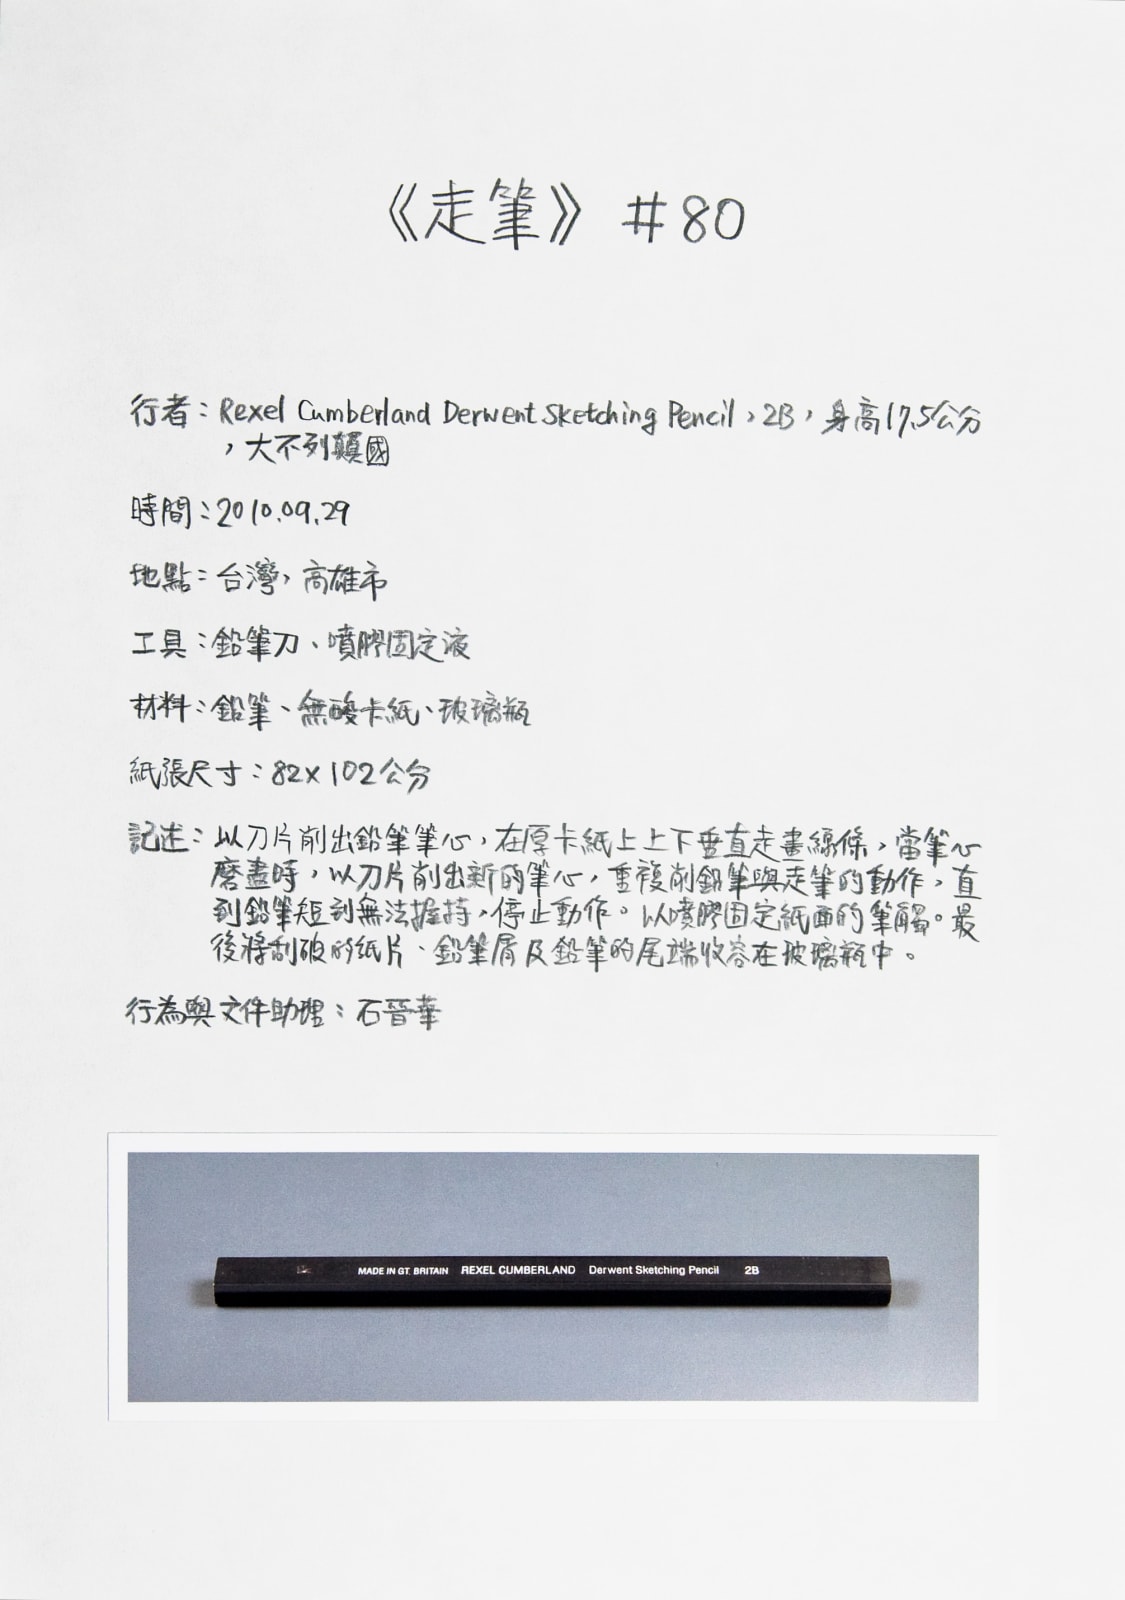 《走筆》 #80
行者：Rexel Cumberland Derwent Sketching Pencil，2B，身高17.5公分
，大不列顛國
時間：2010.09.29
地點：台灣，高雄市
工具：鉛筆刀、噴膠固定液
材料：鉛筆、無酸卡紙、玻璃瓶
紙張尺寸：82x102公分
記述：以刀片削出鉛筆筆心，在厚卡紙上上下垂直走畫線條，當筆心
磨盡時，以刀片削出新的筆心，重複削鉛筆與走筆的動作，直
到鉛筆短到無法握持，停止動作。以噴膠固定紙面的筆觸。最
後將刮破的紙片、鉛筆屑及鉛筆的尾端收容在玻璃瓶中。
行為與文件助理：石晉華
MADE IN GT. BRITAIN REXEL CUMBERLAND Derwent Sketching Pencil 2B